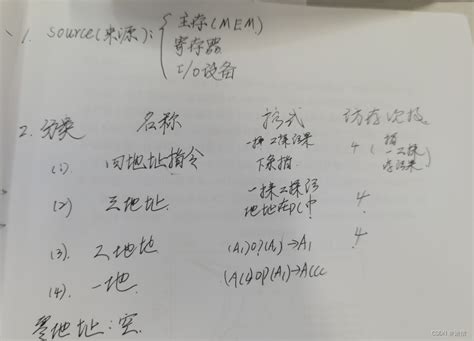 1. source(来源): 主存(MEM)
寄存器
I/O设备
2. 分类 名称 格式 访存次数
(1). 四地址指令 一操二操结果下条指 4 (指一二操存结果
(2) 三地址. 一操二操结地址在PC中 4
(3). 二地址 (A₁)OP(A₂)→A₁ 4
(4). 一地. (ACC)OP(A₁)→ACC
零地址:空.